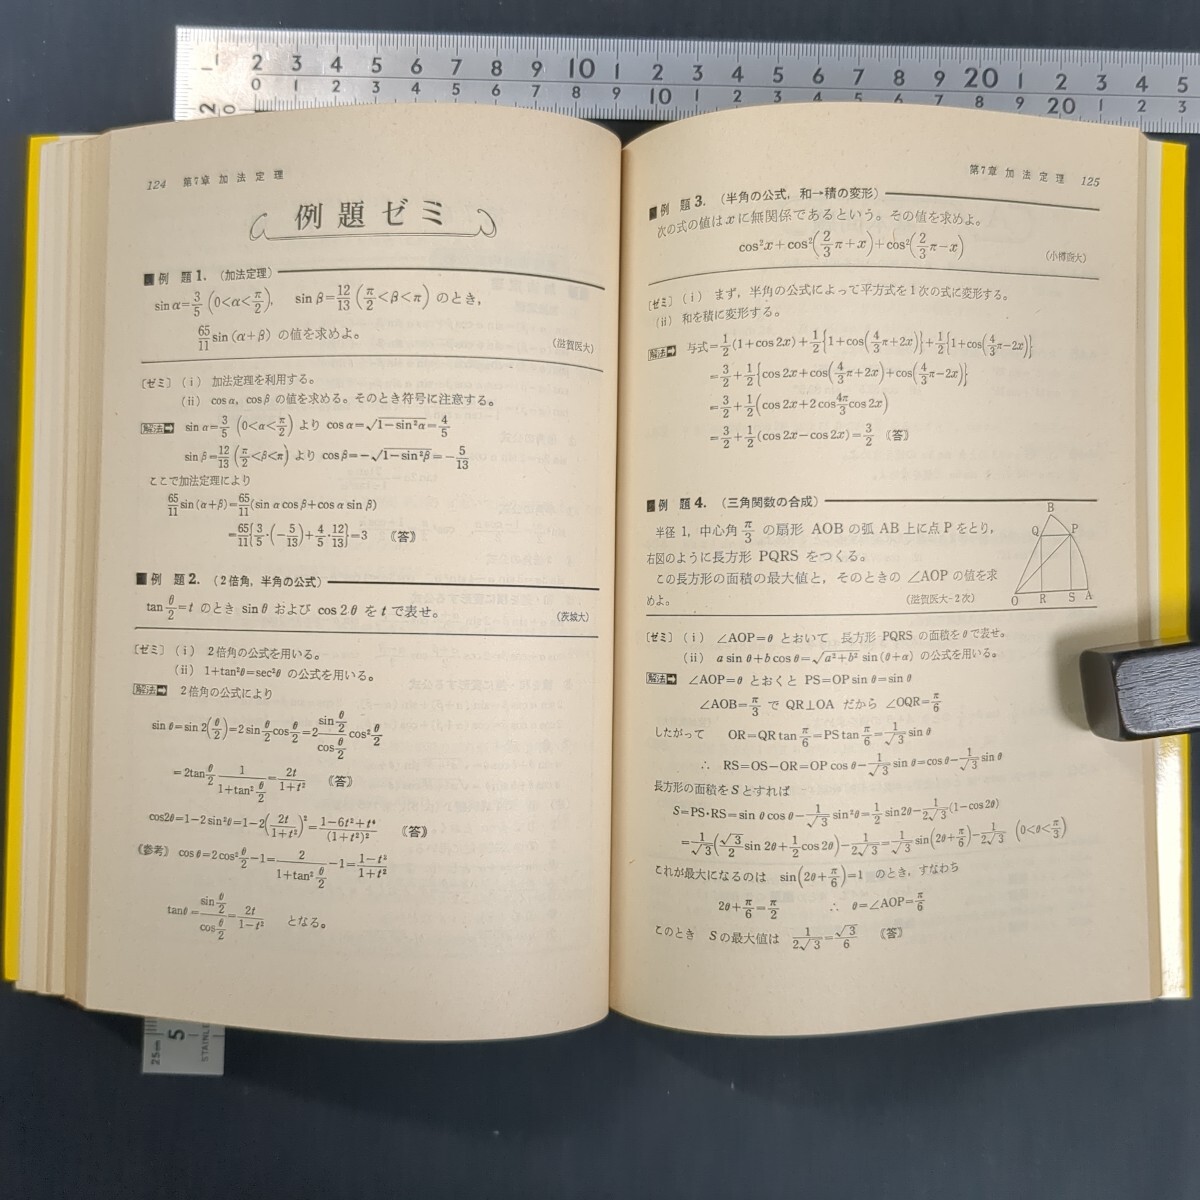 124 第7章 加法定理
例題ゼミ
■例 題1. (加法定理)
sin α=3/5 (0<α<π/2), sin β=12/13 (π/2<β<π) のとき,
65/11 sin (α+β) の値を求めよ。 (滋賀医大)
〔ゼミ〕 (i) 加法定理を利用する。
(ii) cosα, cosβ の値を求める。そのとき符号に注意する。
解法➡ sin α=3/5 (0<α<π/2) より cos α=√(1−sin²α)=4/5
sin β=12/13 (π/2<β<π) より cos β=−√(1−sin²β)=−5/13
ここで加法定理により
65/11 sin (α+β)=65/11 (sin α cos β+cos α sin β)
=65/11{3/5·(−5/13)+4/5·12/13}=3 《答》
■例 題2. (2倍角, 半角の公式)
tan θ/2=t のとき sin θ および cos 2θ を t で表せ。 (茨城大)
〔ゼミ〕 (i) 2倍角の公式を用いる。
(ii) 1+tan²θ=sec²θ の公式を用いる。
解法➡ 2倍角の公式により
sin θ=sin 2(θ/2)=2 sin θ/2 cos θ/2=2 (sin θ/2)/(cos θ/2) cos² θ/2
=2tan θ/2 · 1/(1+tan² θ/2)=2t/(1+t²) 《答》
cos2θ=1−2 sin²θ=1−2(2t/(1+t²))²=(1−6t²+t⁴)/(1+t²)² 《答》
《参考》 cos θ=2 cos² θ/2−1=2/(1+tan² θ/2)−1=(1−t²)/(1+t²)
tanθ=(sin θ/2)/(cos θ/2)=2t/(1−t²) となる。
第7章 加法定理 125
■例 題3. (半角の公式, 和→積の変形)
次の式の値は x に無関係であるという。その値を求めよ。
cos²x+cos²(2/3 π+x)+cos²(2/3 π−x) (小樽商大)
〔ゼミ〕 (i) まず, 半角の公式によって平方式を1次の式に変形する。
(ii) 和を積に変形する。
解法➡ 与式=1/2(1+cos 2x)+1/2{1+cos(4/3 π+2x)}+1/2{1+cos(4/3 π−2x)}
=3/2+1/2{cos 2x+cos(4/3 π+2x)+cos(4/3 π−2x)}
=3/2+1/2(cos 2x+2 cos 4π/3 cos 2x)
=3/2+1/2(cos 2x−cos 2x)=3/2 《答》
■例 題4. (三角関数の合成)
半径 1, 中心角 π/3 の扇形 AOB の弧 AB 上に点 P をとり,
右図のように長方形 PQRS をつくる。
この長方形の面積の最大値と, そのときの ∠AOP の値を求
めよ。 (滋賀医大-2次)
B
Q P
O R S A
〔ゼミ〕 (i) ∠AOP=θ とおいて, 長方形 PQRS の面積を θ で表せ。
(ii) a sin θ+b cos θ=√(a²+b²) sin (θ+α) の公式を用いる。
解法➡ ∠AOP=θ とおくと PS=OP sin θ=sin θ
∠AOB=π/3 で QR⊥OA だから ∠OQR=π/6
したがって OR=QR tan π/6=PS tan π/6=1/√3 sin θ
∴ RS=OS−OR=OP cos θ−1/√3 sin θ=cos θ−1/√3 sin θ
長方形の面積を S とすれば
S=PS·RS=sin θ cos θ−1/√3 sin²θ=1/2 sin 2θ−1/2√3 (1−cos 2θ)
=1/√3(√3/2 sin 2θ+1/2 cos 2θ)−1/2√3=1/√3 sin(2θ+π/6)−1/2√3 (0<θ<π/3)
これが最大になるのは sin(2θ+π/6)=1 のとき, すなわち
2θ+π/6=π/2 ∴ θ=∠AOP=π/6
このとき S の最大値は 1/2√3=√3/6 《答》